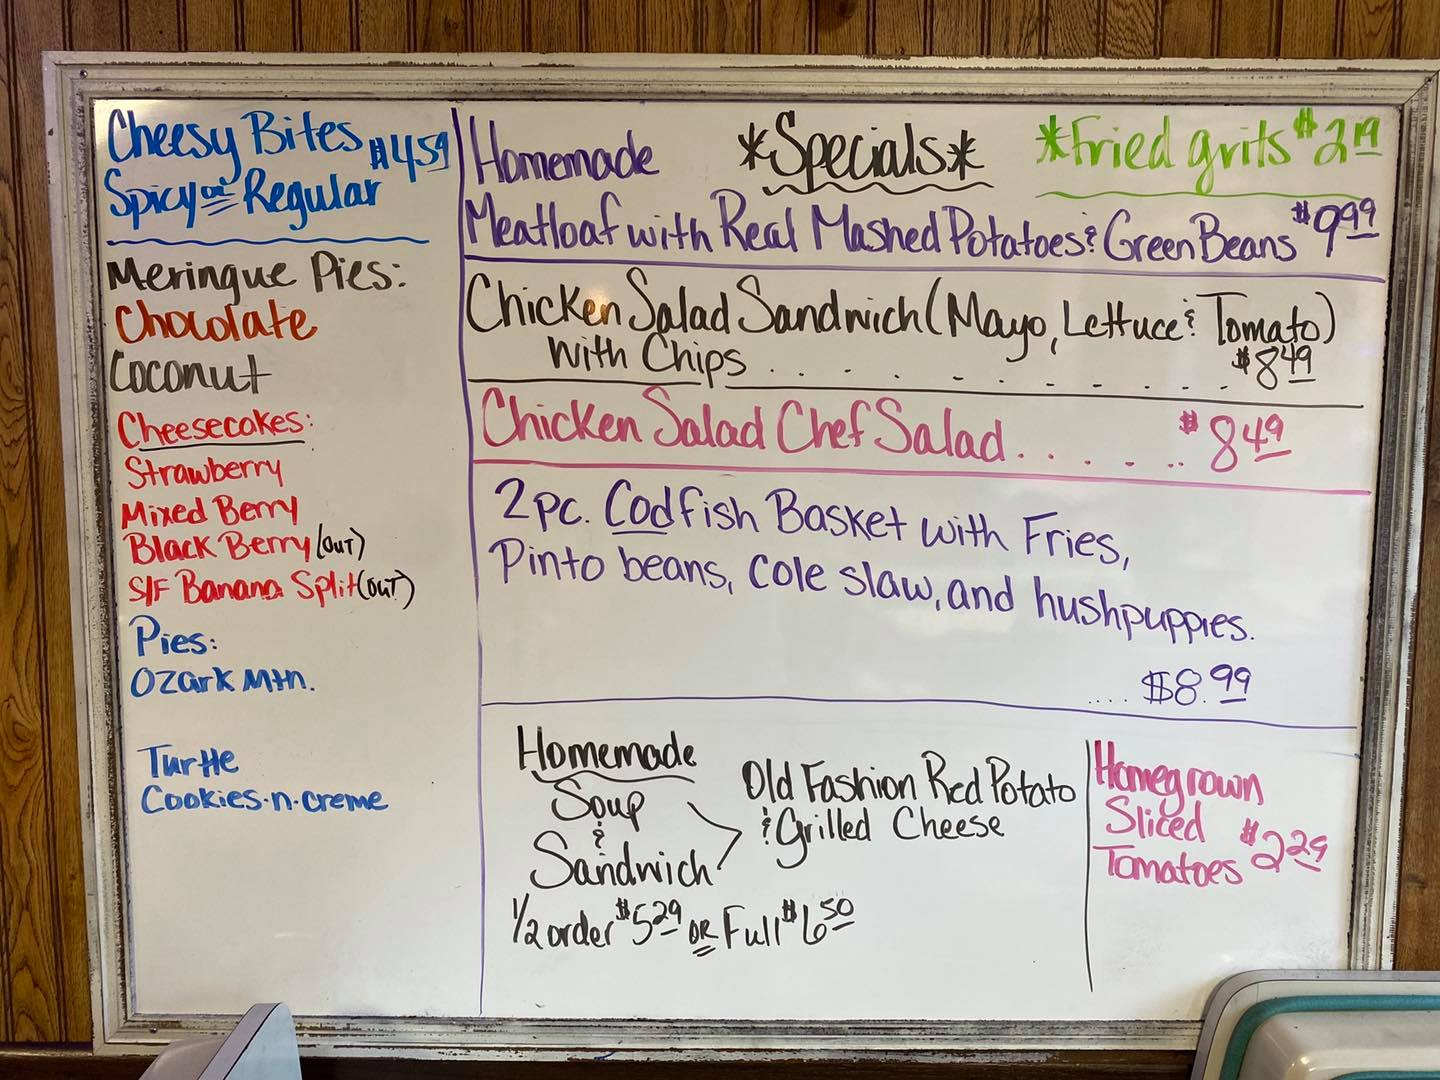 Cheesy Bites $4.59
Spicy or Regular
Meringue Pies:
Chocolate
Coconut
Cheesecakes:
Strawberry
Mixed Berry
Black Berry (OUT)
S/F Banana Split (OUT)
Pies:
Ozark Mtn.
Turtle
Cookies-n-creme
*Specials*
*Fried grits $2.19
Homemade
Meatloaf with Real Mashed Potatoes & Green Beans $9.99
Chicken Salad Sandwich (Mayo, Lettuce & Tomato)
with Chips . . . . . . . . . . . $8.49
Chicken Salad Chef Salad . . . . . . $8.49
2pc. Codfish Basket with Fries,
Pinto beans, cole slaw, and hushpuppies.
.... $8.99
Homemade
Soup
&
Sandwich
Old Fashion Red Potato
& Grilled Cheese
1/2 order $5.29 OR Full $6.50
Homegrown
Sliced
Tomatoes $2.29